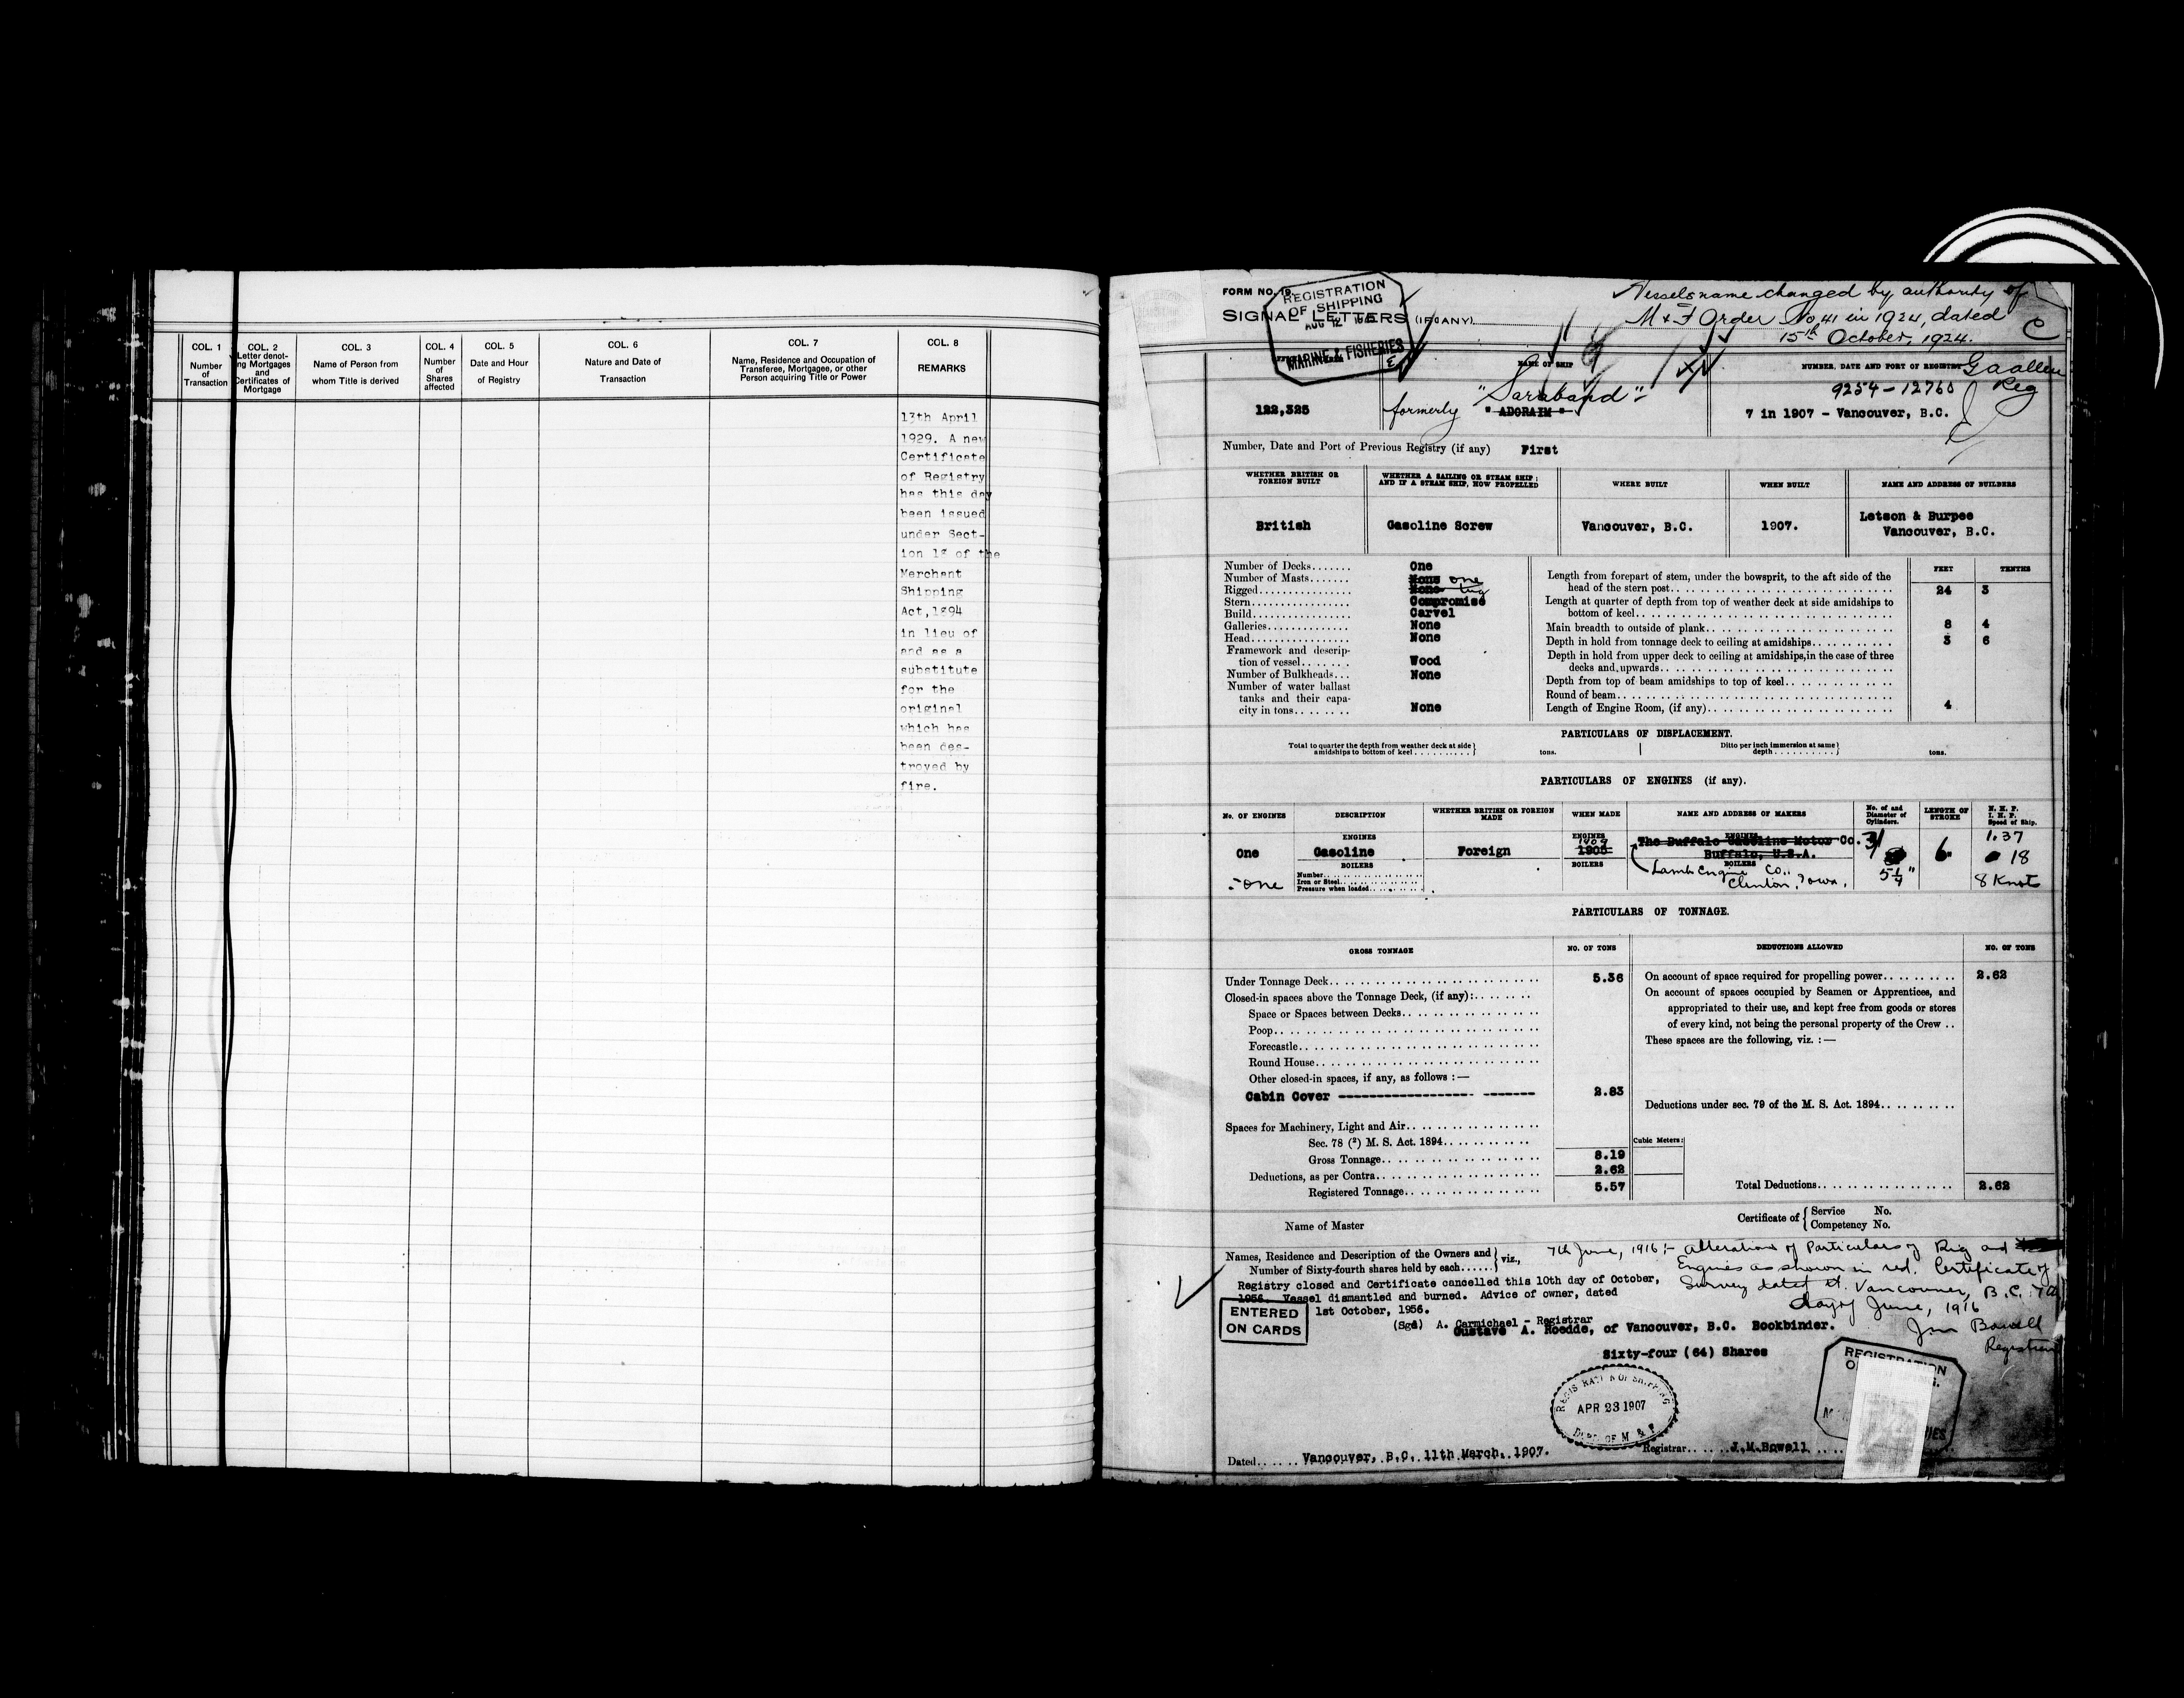 COL. 1
Number
of
Transaction
COL. 2
Letter denot-
ing Mortgages
and
Certificates of
Mortgage
COL. 3
Name of Person from
whom Title is derived
COL. 4
Number
of
Shares
affected
COL. 5
Date and Hour
of Registry
COL. 6
Nature and Date of
Transaction
COL. 7
Name, Residence and Occupation of
Transferee, Mortgagee, or other
Person acquiring Title or Power
COL. 8
REMARKS
13th April
1929. A new
Certificate
of Registry
has this day
been issued
under Sect-
ion 18 of the
Merchant
Shipping
Act,1894
in lieu of
and as a
substitute
for the
original
which has
been des-
troyed by
fire.
FORM NO. 19.
REGISTRATION
OF SHIPPING
AUG 12
MARINE & FISHERIES
SIGNAL LETTERS (IF ANY)
Vessels name changed by authority of
M & F Order No 41 in 1924, dated
15th October, 1924.
C
G A Allen
Reg
NAME OF SHIP
NUMBER, DATE AND PORT OF REGISTRY
9254-12760
122,325
"Saraband"
formerly "ADORAIM"
7 in 1907 - Vancouver, B.C.
Number, Date and Port of Previous Registry (if any) First
WHETHER BRITISH OR
FOREIGN BUILT
WHETHER A SAILING OR STEAM SHIP;
AND IF A STEAM SHIP, HOW PROPELLED
WHERE BUILT
WHEN BUILT
NAME AND ADDRESS OF BUILDERS
British
Gasoline Screw
Vancouver, B.C.
1907.
Letson & Burpee
Vancouver, B.C.
Number of Decks....... One
Number of Masts....... None one
Rigged................ None tug
Stern................. Compromise
Build................. Carvel
Galleries............. None
Head.................. None
Framework and descrip-
tion of vessel....... Wood
Number of Bulkheads... None
Number of water ballast
tanks and their capa-
city in tons........ None
FEET TENTHS
Length from forepart of stem, under the bowsprit, to the aft side of the
head of the stern post........ 24 3
Length at quarter of depth from top of weather deck at side amidships to
bottom of keel........
Main breadth to outside of plank........ 8 4
Depth in hold from tonnage deck to ceiling at amidships........ 3 6
Depth in hold from upper deck to ceiling at amidships, in the case of three
decks and upwards........
Depth from top of beam amidships to top of keel........
Round of beam........
Length of Engine Room, (if any)........ 4
PARTICULARS OF DISPLACEMENT.
Total to quarter the depth from weather deck at side
amidships to bottom of keel.......... tons.
Ditto per inch immersion at same
depth.......... tons.
PARTICULARS OF ENGINES (if any).
No. OF ENGINES
DESCRIPTION
WHETHER BRITISH OR FOREIGN
MADE
WHEN MADE
NAME AND ADDRESS OF MAKERS
No. of and
Diameter of
Cylinders.
LENGTH OF
STROKE
N. H. P.
I. H. P.
Speed of Ship.
One
One
ENGINES
Gasoline
BOILERS
Number........
Iron or Steel........
Pressure when loaded........
Foreign
ENGINES
1909
1905
BOILERS
ENGINES
The Buffalo Gasoline Motor Co.
Buffalo, U.S.A.
BOILERS
Lamb Engine Co.,
Clinton, Iowa.
3
5¼"
6
1.37
18
8 Knots
PARTICULARS OF TONNAGE.
GROSS TONNAGE
NO. OF TONS
DEDUCTIONS ALLOWED
NO. OF TONS
Under Tonnage Deck........ 5.36
Closed-in spaces above the Tonnage Deck, (if any):........
Space or Spaces between Decks........
Poop........
Forecastle........
Round House........
Other closed-in spaces, if any, as follows :—
Cabin Cover ------------------- ------- 2.83
Spaces for Machinery, Light and Air........
Sec. 78 (²) M. S. Act. 1894........
Gross Tonnage........ 8.19
Deductions, as per Contra........ 2.62
Registered Tonnage........ 5.57
On account of space required for propelling power........ 2.62
On account of spaces occupied by Seamen or Apprentices, and
appropriated to their use, and kept free from goods or stores
of every kind, not being the personal property of the Crew ..
These spaces are the following, viz. :—
Deductions under sec. 79 of the M. S. Act. 1894........
Cubic Meters:
Total Deductions........ 2.62
Name of Master
Certificate of { Service No.
Competency No.
Names, Residence and Description of the Owners and
Number of Sixty-fourth shares held by each...... } viz.,
7th June, 1916:- Alteration of Particulars of Rig and
Engines as shown in red. Certificate of
Survey dated at Vancouver, B.C. 7th
day of June, 1916
Jn Bowell
Registrar
Registry closed and Certificate cancelled this 10th day of October,
1956. Vessel dismantled and burned. Advice of owner, dated
1st October, 1956.
(Sgd) A. Carmichael - Registrar
ENTERED
ON CARDS
Gustave A. Roedde, of Vancouver, B.C. Bookbinder.
Sixty-four (64) Shares
REGISTRATION OF SHIPPING
APR 23 1907
DEPT. OF M & F
REGISTRATION
Dated...... Vancouver, B.C. 11th March, 1907.
Registrar...... J.M.Bowell